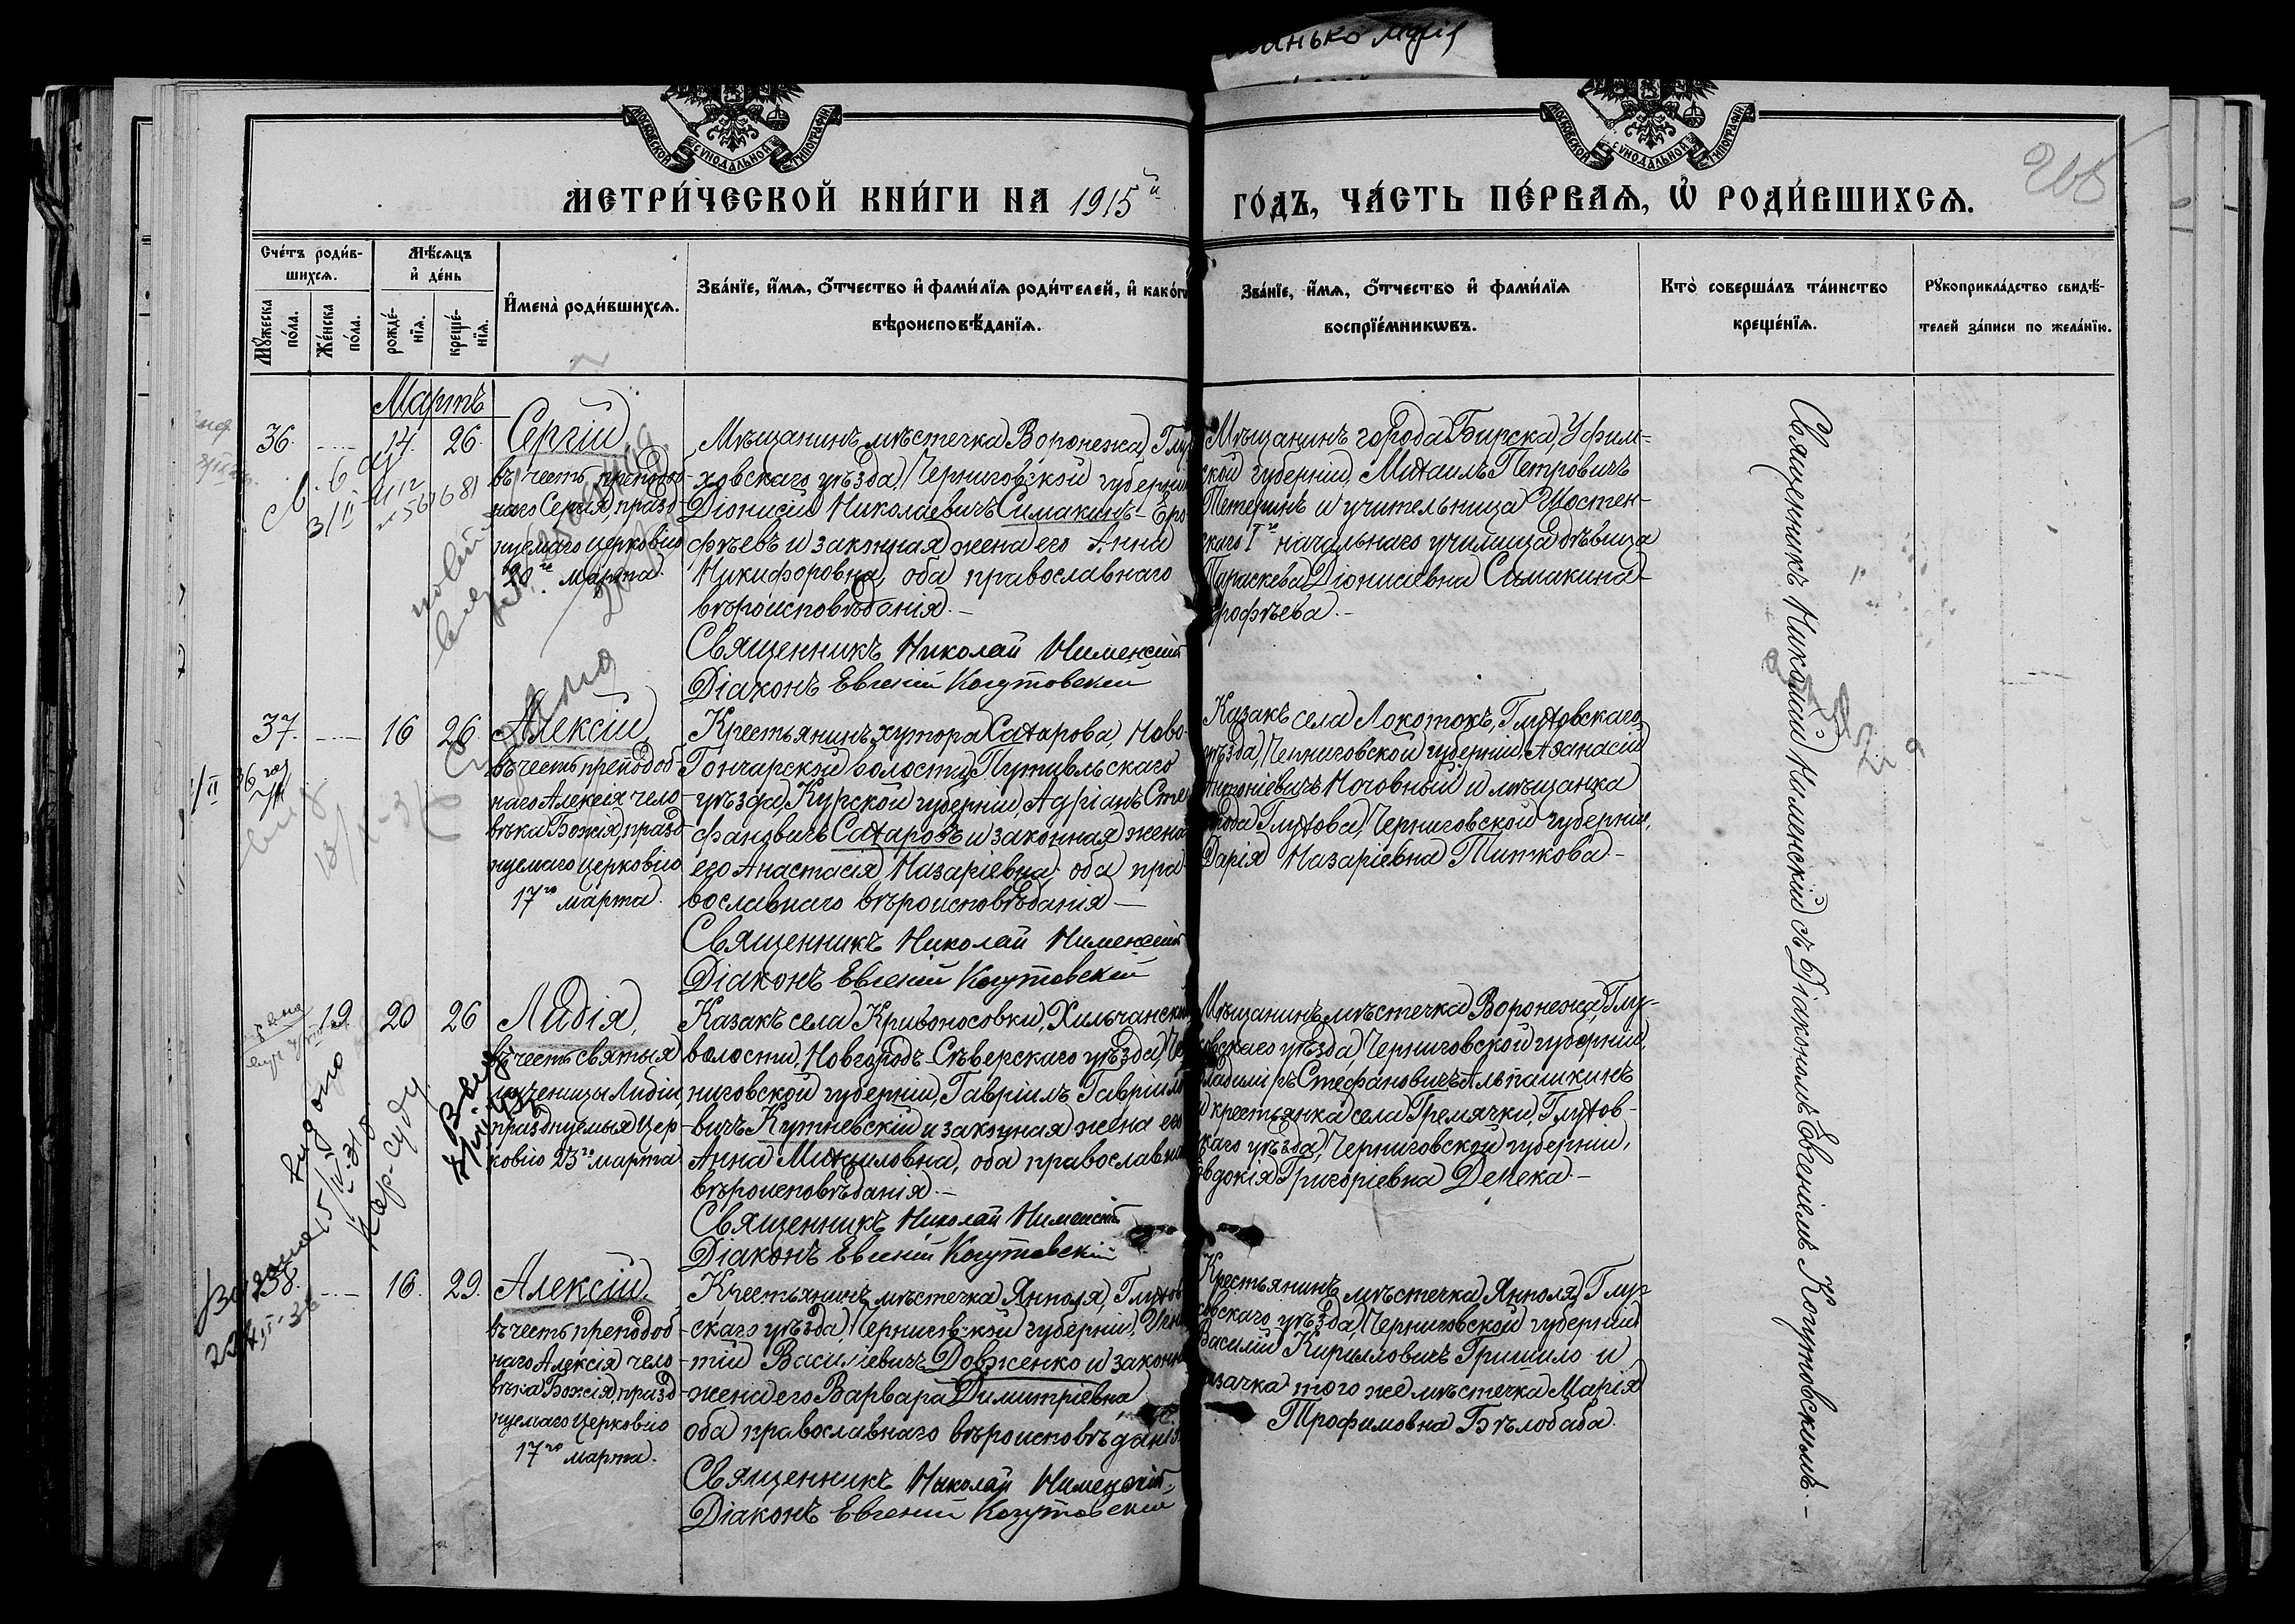 МЕТРИ́ЧЕСКОЙ КНИ́ГИ НА 1915й ГО́ДЪ, ЧА́СТЬ ПЕ́РВАѦ, Ѽ РОДИ́ВШИХСѦ.
МОСКОВСКОЙ СѴНОДАЛЬНОЙ ТИПОГРАФІИ
МОСКОВСКОЙ СѴНОДАЛЬНОЙ ТИПОГРАФІИ
Сче́тъ роди́в-
шихсѧ.
Мꙋ́жеска по́ла.
Же́нска по́ла.
Мѣ́сѧцъ
и҆ де́нь
рожде́-
нїѧ.
креще́-
нїѧ.
И҆мена̀ роди́вшихсѧ.
Зва́нїе, и҆́мѧ, ѻ҆́тчество и҆ фами́лїѧ роди́телей, и҆ како́гѡ
вѣроисповѣ́данїѧ.
Зва́нїе, и҆́мѧ, ѻ҆́тчество и҆ фами́лїѧ
воспрїе́мникѡвъ.
Кто̀ соверша́лъ та́инство
креще́нїѧ.
Рꙋкоприкла́дство свидѣ́-
телей за́писи по жела́нїю.
Мартъ
36. 14. 26.
Сергій
въ честь преподоб-
наго Сергія, празд-
нуемаго церковію
20го марта.
Мѣщанинъ мѣстечка Воронежа, Глу-
ховскаго уѣзда, Черниговской губерніи
Діонисій Николаевичъ Симакинъ-Еро-
фѣевъ и законная жена его Анна
Никифоровна, оба православнаго
вѣроисповѣданія.-
Священникъ Николай
Діаконъ Евгеній Когутовскій
Мѣщанинъ города Бирска, Уфим-
ской губерніи, Михаилъ Петровичъ
Тетеринъ и учительница Шостен-
скаго Iго начальнаго училища дѣвица
Параскева Діонисіевна Симакина-
Ерофѣева.-
37. 16 26.
Алексій,
въ честь преподоб
наго Алексія чело
вѣка Божія, празд
нуемаго церковію
17го марта.
Крестьянинъ хутора Сахарова, Ново-
Гончарской волости, Путивльскаго
уѣзда, Курской губерніи, Адріанъ Сте-
фановичъ Сахаровъ и законная жена
его Анастасія Назаріевна, оба пра-
вославнаго вѣроисповѣданія-
Священникъ Николай
Діаконъ Евгеній Когутовскій
Казакъ села Локотокъ, Глуховскаго
уѣзда, Черниговской губерніи, Аѳанасій
Антоніевичъ Ночовный и мѣщанка
города Глухова, Черниговской губерніи,
Дарія Назаріевна Титкова-
19 20 26
Лидія,
въ честь святыя
мученицы Лидіи,
празднуемыя Цер-
ковію 23го марта
Казакъ села Кривоносовки, Хильчанской
волости, Новгородъ-Сѣверскаго уѣзда, Чер-
ниговской губерніи, Гавріилъ Гавріило-
вичъ Кутневскій и законная жена его
Анна Михаиловна, оба православнаго
вѣроисповѣданія.-
Священникъ Николай
Діаконъ Евгеній Когутовскій
Мѣщанинъ мѣстечка Воронежа, Глу-
ховскаго уѣзда, Черниговской губерніи,
Владиміръ Стефановичъ Альпашкинъ
и крестьянка села Гремячки, Глухов-
скаго уѣзда, Черниговской губерніи,
Евдокія Григоріевна Демека.-
38. 16. 29.
Алексій,
въ честь преподоб
наго Алексія чело
вѣка Божія, празд
нуемаго Церковію
17го марта.
Крестьянинъ мѣстечка Янполя, Глухов-
скаго уѣзда, Черниговской губерніи, Игна-
тій Василіевичъ Довженко и законная
жена его Варвара Димитріевна,
оба православнаго вѣроисповѣданія.
Священникъ Николай
Діаконъ Евгеній Когутовскій
Крестьянинъ мѣстечка Янполя, Глу-
ховскаго уѣзда, Черниговской губерніи
Василій Кирилловичъ Гришило и
казачка того же мѣстечка Марія
Трофимовна Бѣлобаба.
Священникъ Николай Нименскій съ Діакономъ Евгеніемъ Когутовскимъ.-